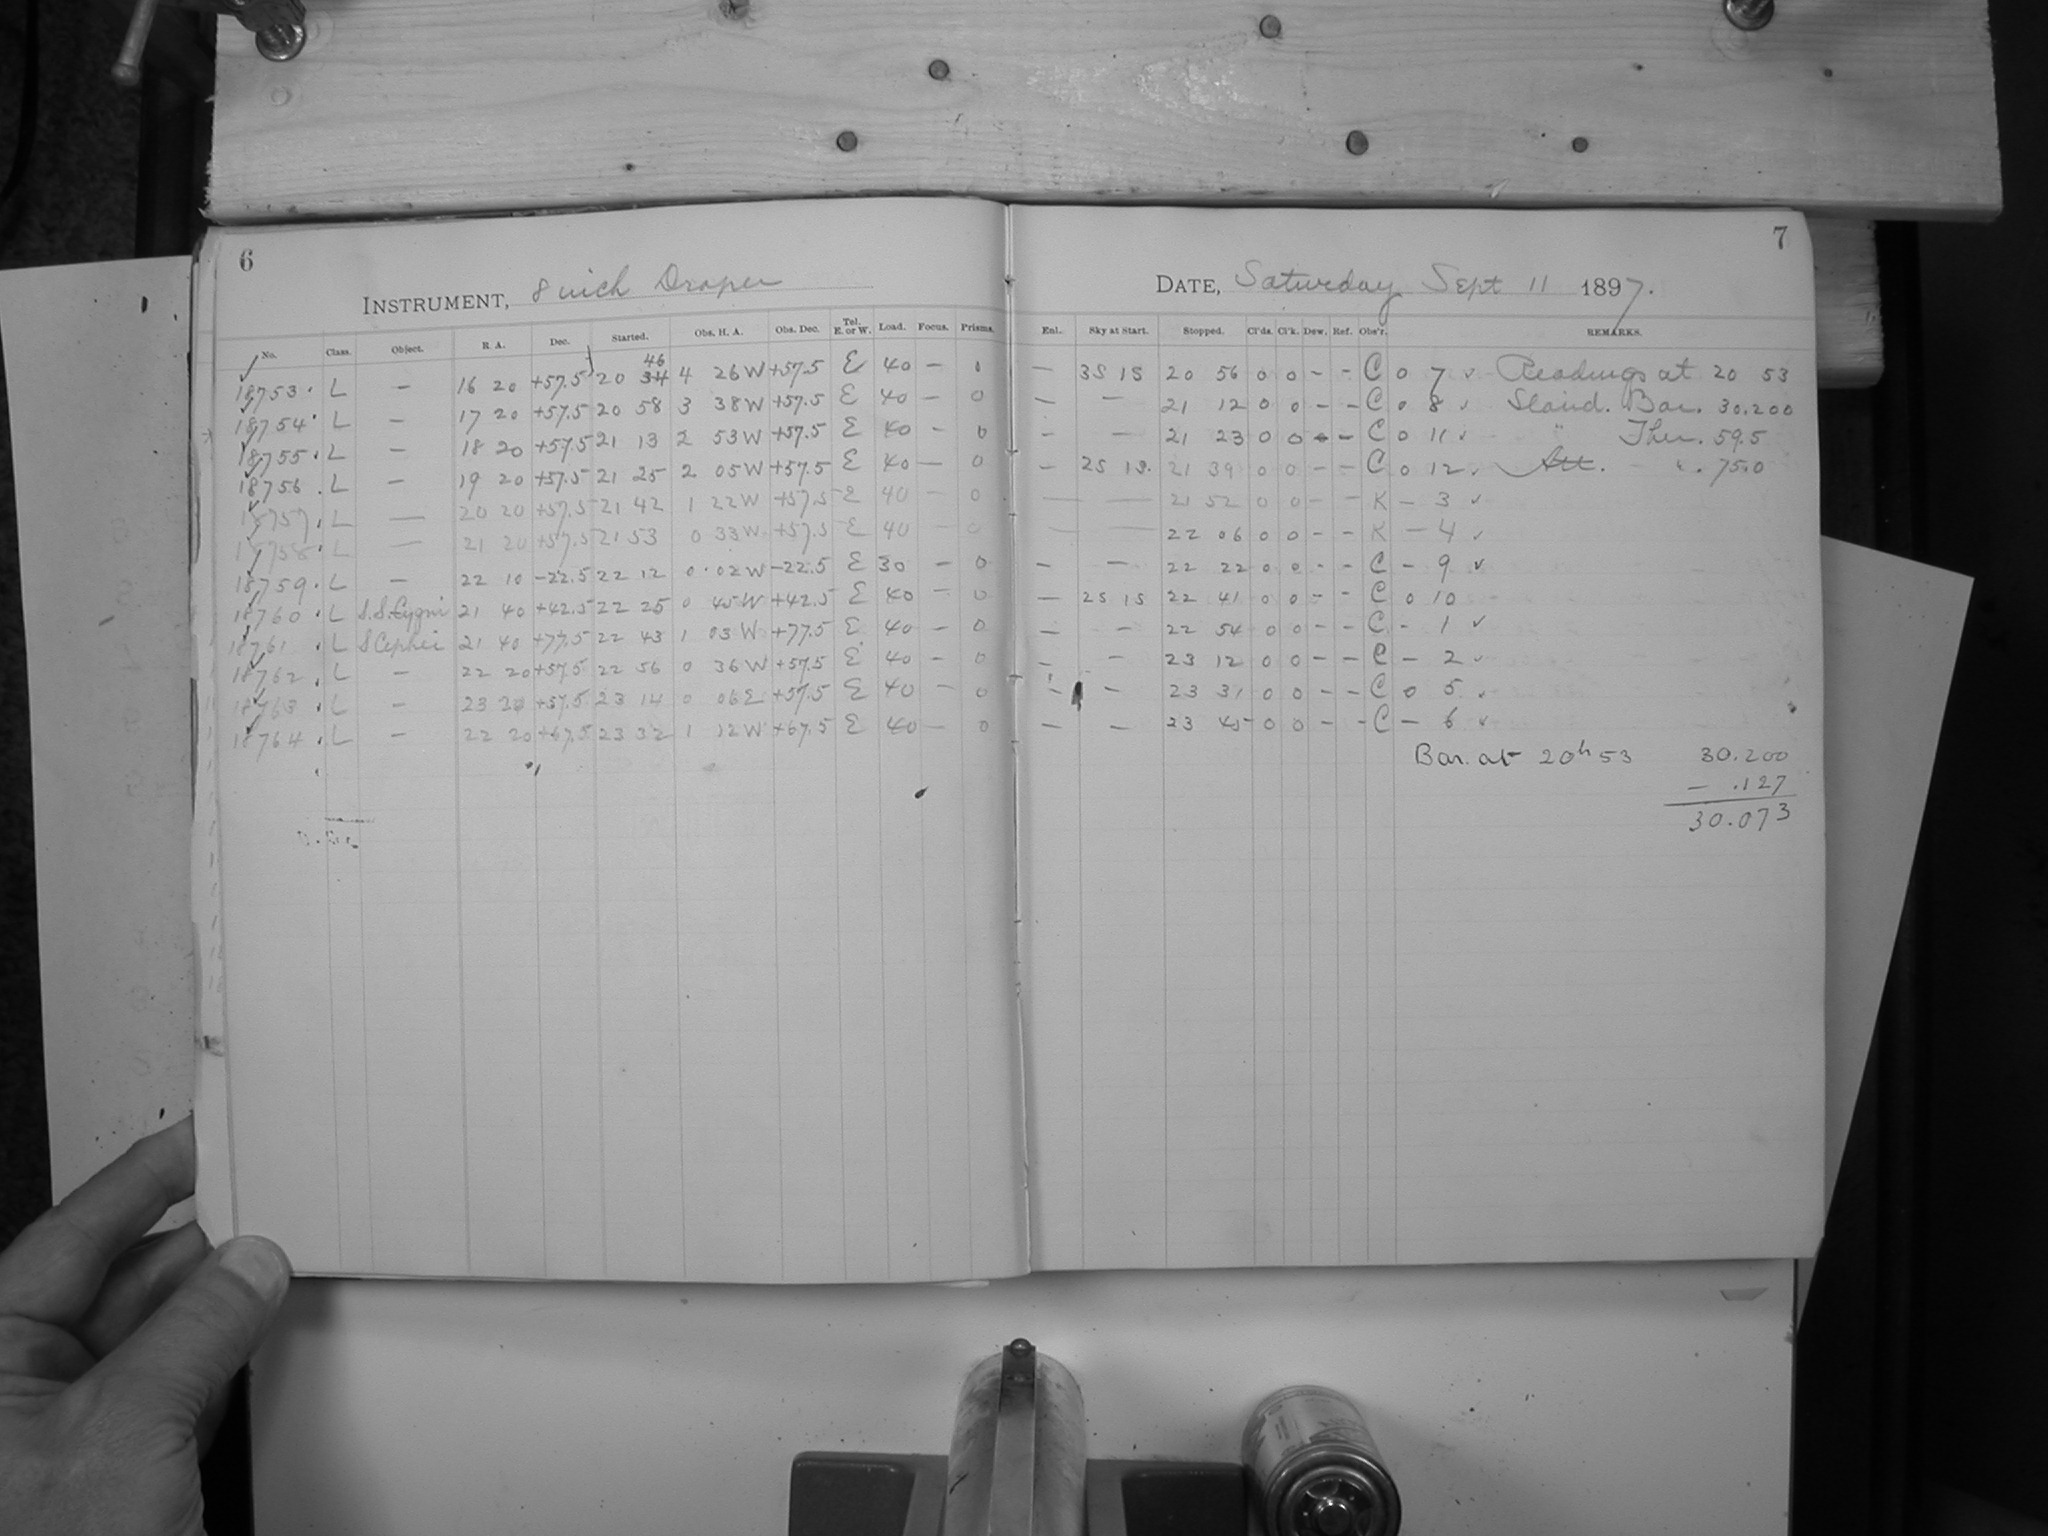 6
INSTRUMENT, 8 inch Draper
No. Class. Object. R. A. Dec. Started. Obs. H. A. Obs. Dec. Tel. E. or W. Load. Focus. Prisms.
18753 L — 16 20 +57.5 20 34 46 4 26W +57.5 E 40 — 0
18754 L — 17 20 +57.5 20 58 3 38W +57.5 E 40 — 0
18755 L — 18 20 +57.5 21 13 2 53W +57.5 E 40 — 0
18756 L — 19 20 +57.5 21 25 2 05W +57.5 E 40 — 0
18757 L — 20 20 +57.5 21 42 1 22W +57.5 E 40 — 0
18758 L — 21 20 +57.5 21 53 0 33W +57.5 E 40 — 0
18759 L — 22 10 -22.5 22 12 0 02W -22.5 E 30 — 0
18760 L S.S.Cygni 21 40 +42.5 22 25 0 45W +42.5 E 40 — 0
18761 L S Cephei 21 40 +77.5 22 43 1 03W +77.5 E 40 — 0
18762 L — 22 20 +57.5 22 56 0 36W +57.5 E 40 — 0
18763 L — 23 20 +57.5 23 14 0 06E +57.5 E 40 — 0
18764 L — 22 20 +67.5 23 32 1 12W +67.5 E 40 — 0
7
DATE, Saturday Sept 11 1897.
Enl. Sky at Start. Stopped. Cl'ds. Cl'k. Dew. Ref. Obs'r. REMARKS.
— 3S 1S 20 56 0 0 - - C 0 7 ✓ Readings at 20 53
— — 21 12 0 0 - - C 0 8 ✓ Stand. Bar. 30.200
— — 21 23 0 0 - - C 0 11 ✓ " Ther. 59.5
— 2S 1S. 21 39 0 0 - - C 0 12 ✓ Att. " 75.0
— — 21 52 0 0 - - K - 3 ✓
— — 22 06 0 0 - - K - 4 ✓
— — 22 22 0 0 - - C - 9 ✓
— 2S 1S 22 41 0 0 - - C 0 10
— — 22 54 0 0 - - C - 1 ✓
— — 23 12 0 0 - - C - 2 ✓
— — 23 31 0 0 - - C 0 5 ✓
— — 23 45 0 0 - - C - 6 ✓
Bar. at 20h 53 30.200
- .127
30.073